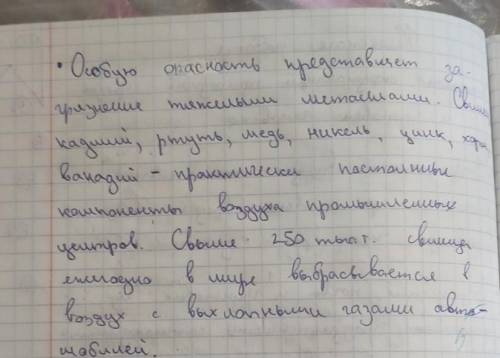 • Особую опасность представляет за-
грязнение тяжелыми металлами. Свин
кадмий, ртуть, медь, никель, цинк, хро
ванадий – практически постоянные
компоненты воздуха промышленных
центров. Свыше 250 тыс т. свинца
ежегодно в мире выбрасывается в
воздух с выхлопными газами авто-
мобилей.